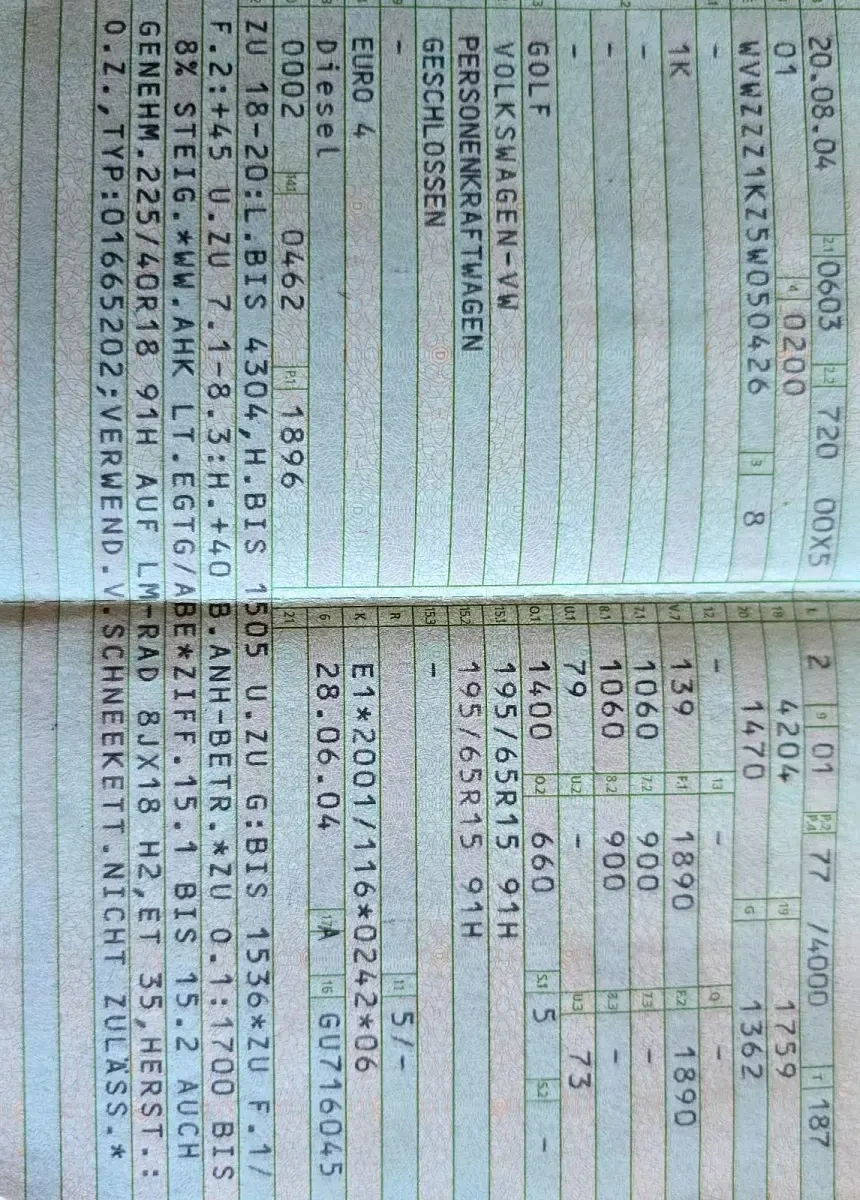 20.08.04 21 0603 2.2 720 00X5 L 2 9 01 P.2 P.4 77 /4000 T 187
01 4 0200 18 4204 19 1759
WVWZZZ1KZ5W050426 3 8 20 1470 G 1362
- 12 - 13 - Q -
1K V.7 139 F.1 1890 F.2 1890
- 7.1 1060 7.2 900 7.3 -
- 8.1 1060 8.2 900 8.3 -
- U.1 79 U.2 - U.3 73
GOLF O.1 1400 O.2 660 S.1 5 S.2 -
VOLKSWAGEN-VW 15.1 195/65R15 91H
PERSONENKRAFTWAGEN 15.2 195/65R15 91H
GESCHLOSSEN 15.3 -
- R 11 5/-
EURO 4 K E1*2001/116*0242*06
Diesel 6 28.06.04 17 A 16 GU716045
0002 14.1 0462 P.1 1896 21
ZU 18-20:L.BIS 4304,H.BIS 1505 U.ZU G:BIS 1536*ZU F.1/
F.2:+45 U.ZU 7.1-8.3:H.+40 B.ANH-BETR.*ZU O.1:1700 BIS
8% STEIG.*WW.AHK LT.EGTG/ABE*ZIFF.15.1 BIS 15.2 AUCH
GENEHM.225/40R18 91H AUF LM-RAD 8JX18 H2,ET 35,HERST.:
O.Z.,TYP:01665202;VERWEND.V.SCHNEEKETT.NICHT ZULÄSS.*